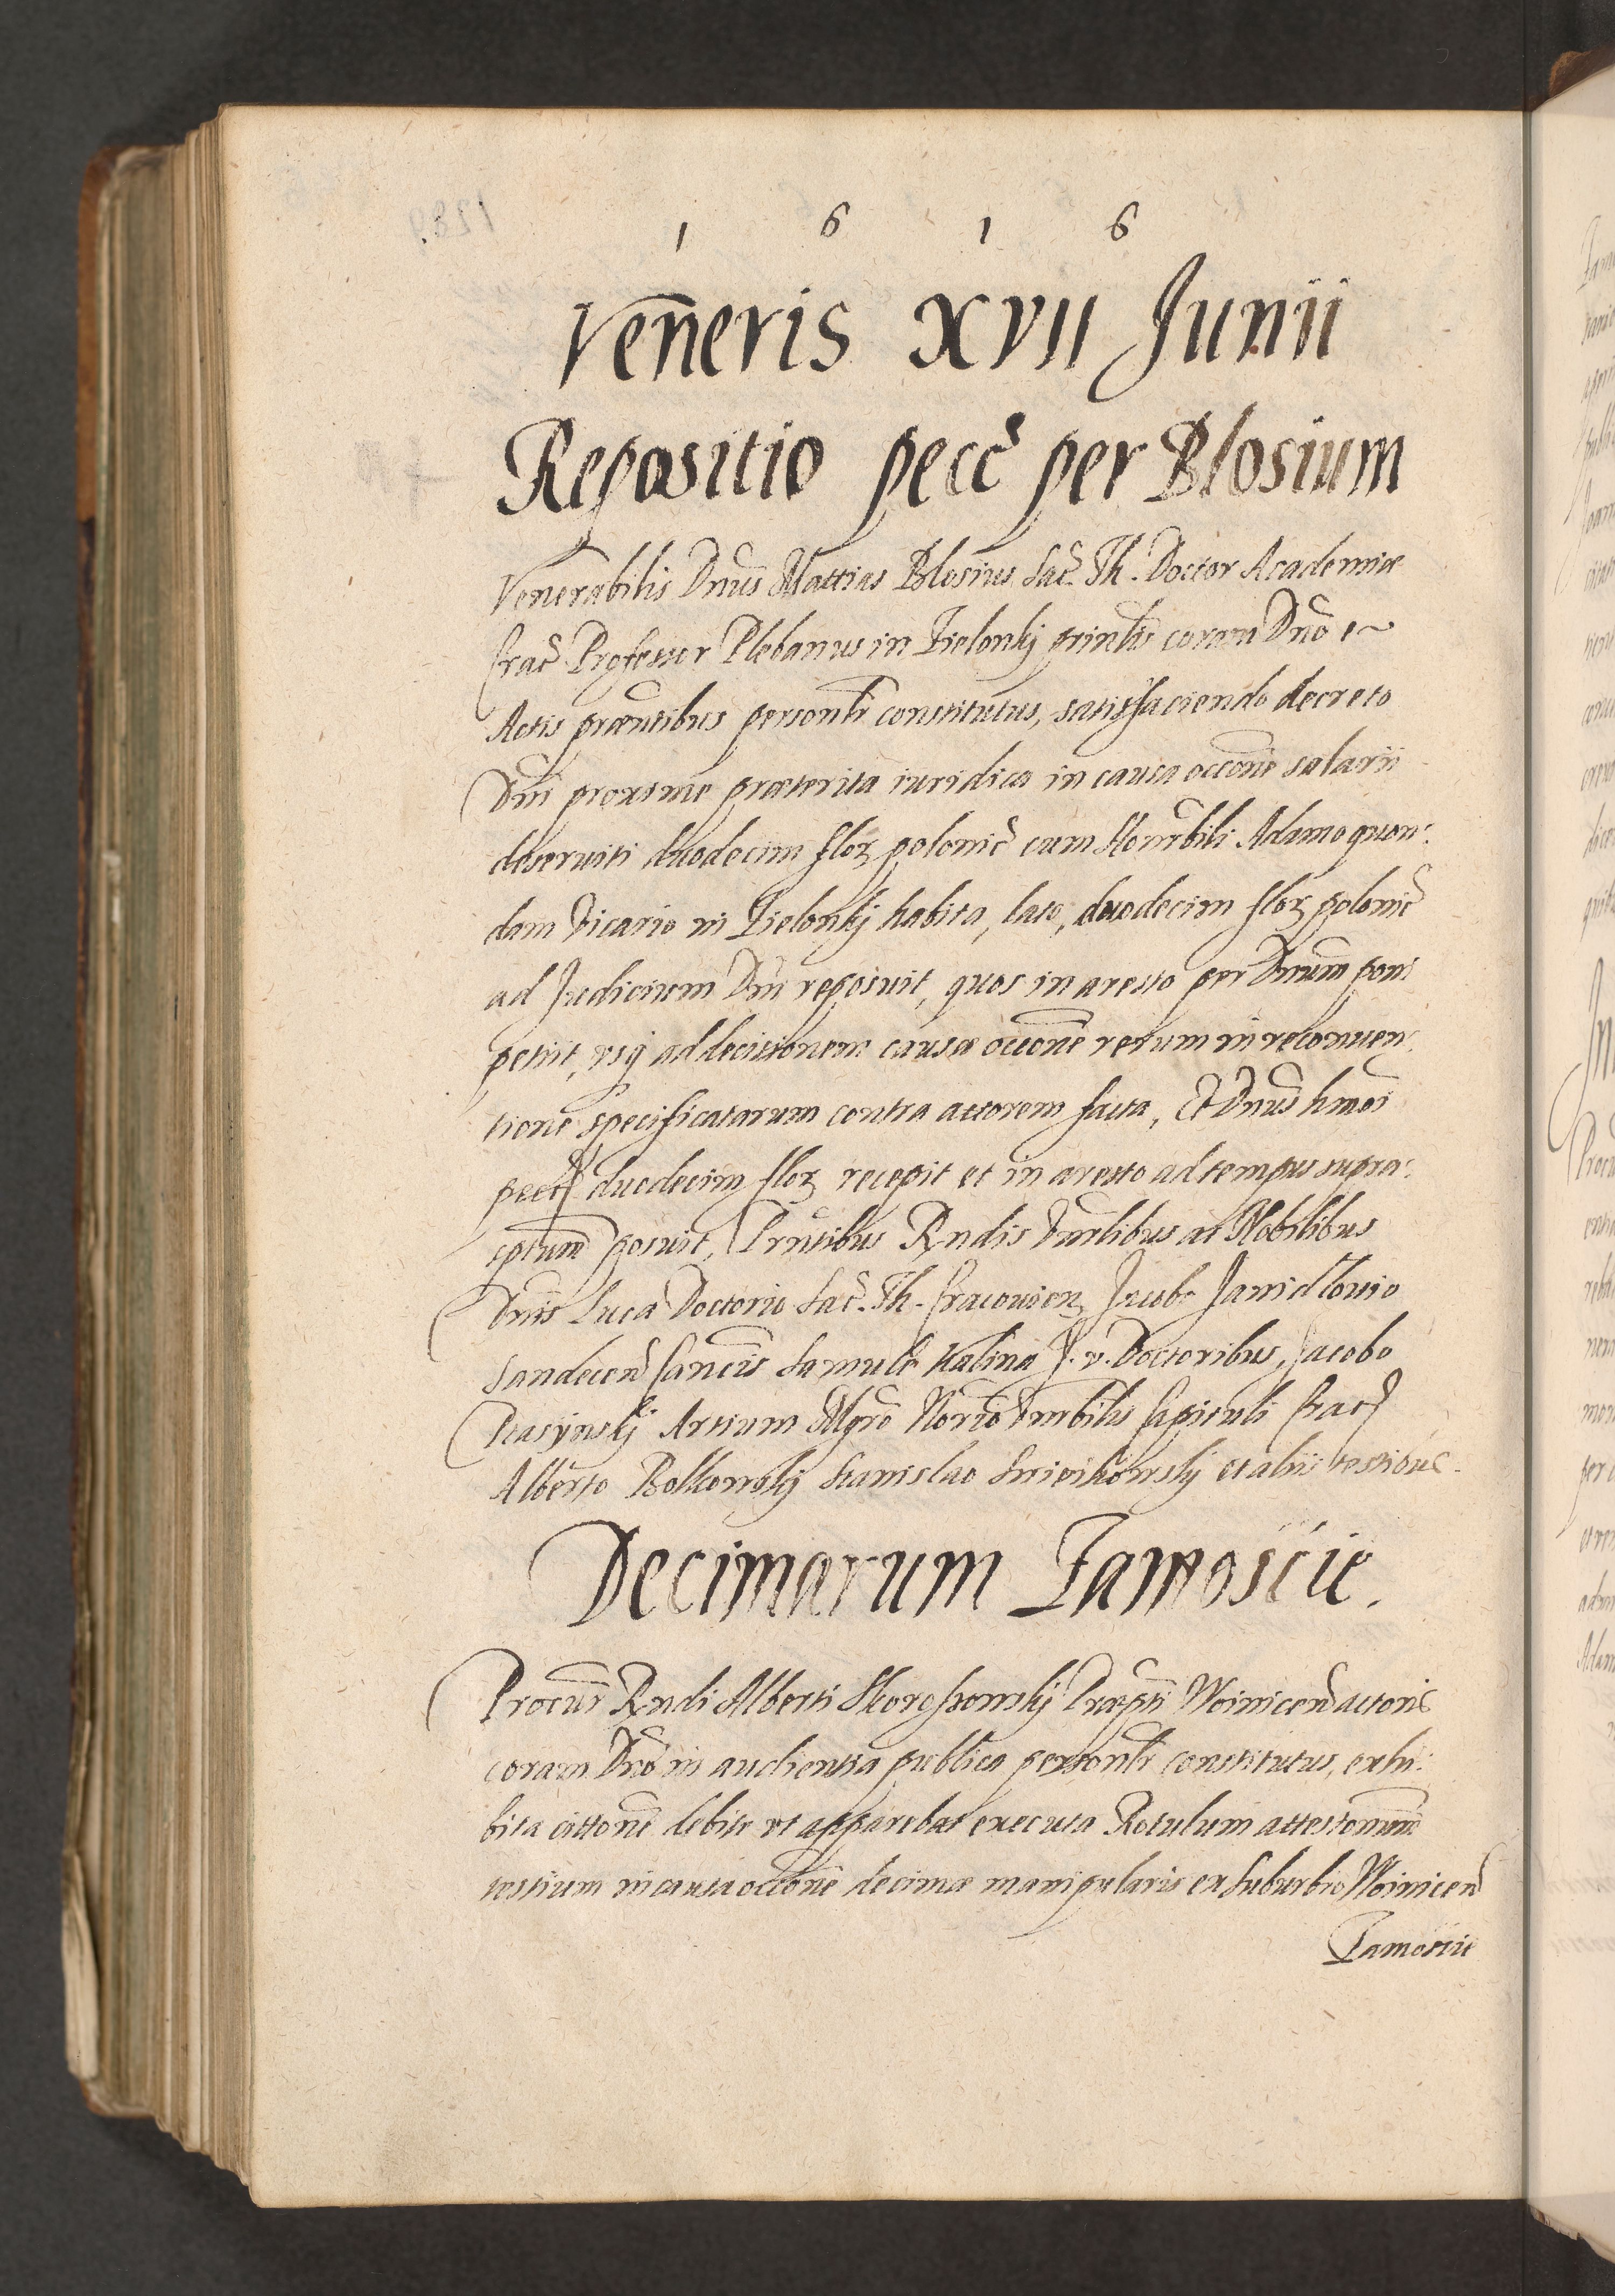 1 6 1 6
Veneris XVII Junii
Repositio pecc per Blosium
Venerabilis Dnus Mattias Blosius Sac. Th. Doctor Academiæ
Crac Professor Plebanus in Zielonkj principalis coram Dno et
Actis præntibus personlr constitutus, satisfaciendo decreto
Dni proxime præterita iuridica in causa occone salarii
deserviti duodecim flor polonic cum Honorbili Adamo quon:
dam Vicario in Zielonkj habita, lato, duodecim flor polonic
ad Judicium Dni reposuit, quos in aresto per Dnum poni
petiit, usq ad decisionem causæ occone rerum in reconuen:
tione specificatarum contra actorem facta, Et Dnus hmoi
pecc duodecim flor recepit et in aresto ad tempus supra:
sptum posuit, Prntibus Rndis Vnrlibus ac Nobilibus
Dnis Luca Doctorio Sac. Th. Cracouien, Jacobo Janidlouio
Sandecen Cancris Samule Kalina J. v. Doctoribus, Jacobo
Piasynskj Artium Mgro Norio Vnrbilis Capituli Crac
Alberto Bolkowskj Stanislao Swiecikowskj et aliis testibus.
Decimarum Zamoscie.
Procur Rndi Alberti Skoroszowskj Præpti Woinicen actoris
coram Dno in audientia publica personlr constitutus, exhi:
bita cittone debite vt apparebat executa Rotulum attestonum
testium in causa occone decimæ manipularis ex suburbio Woinicen
Zamoscie